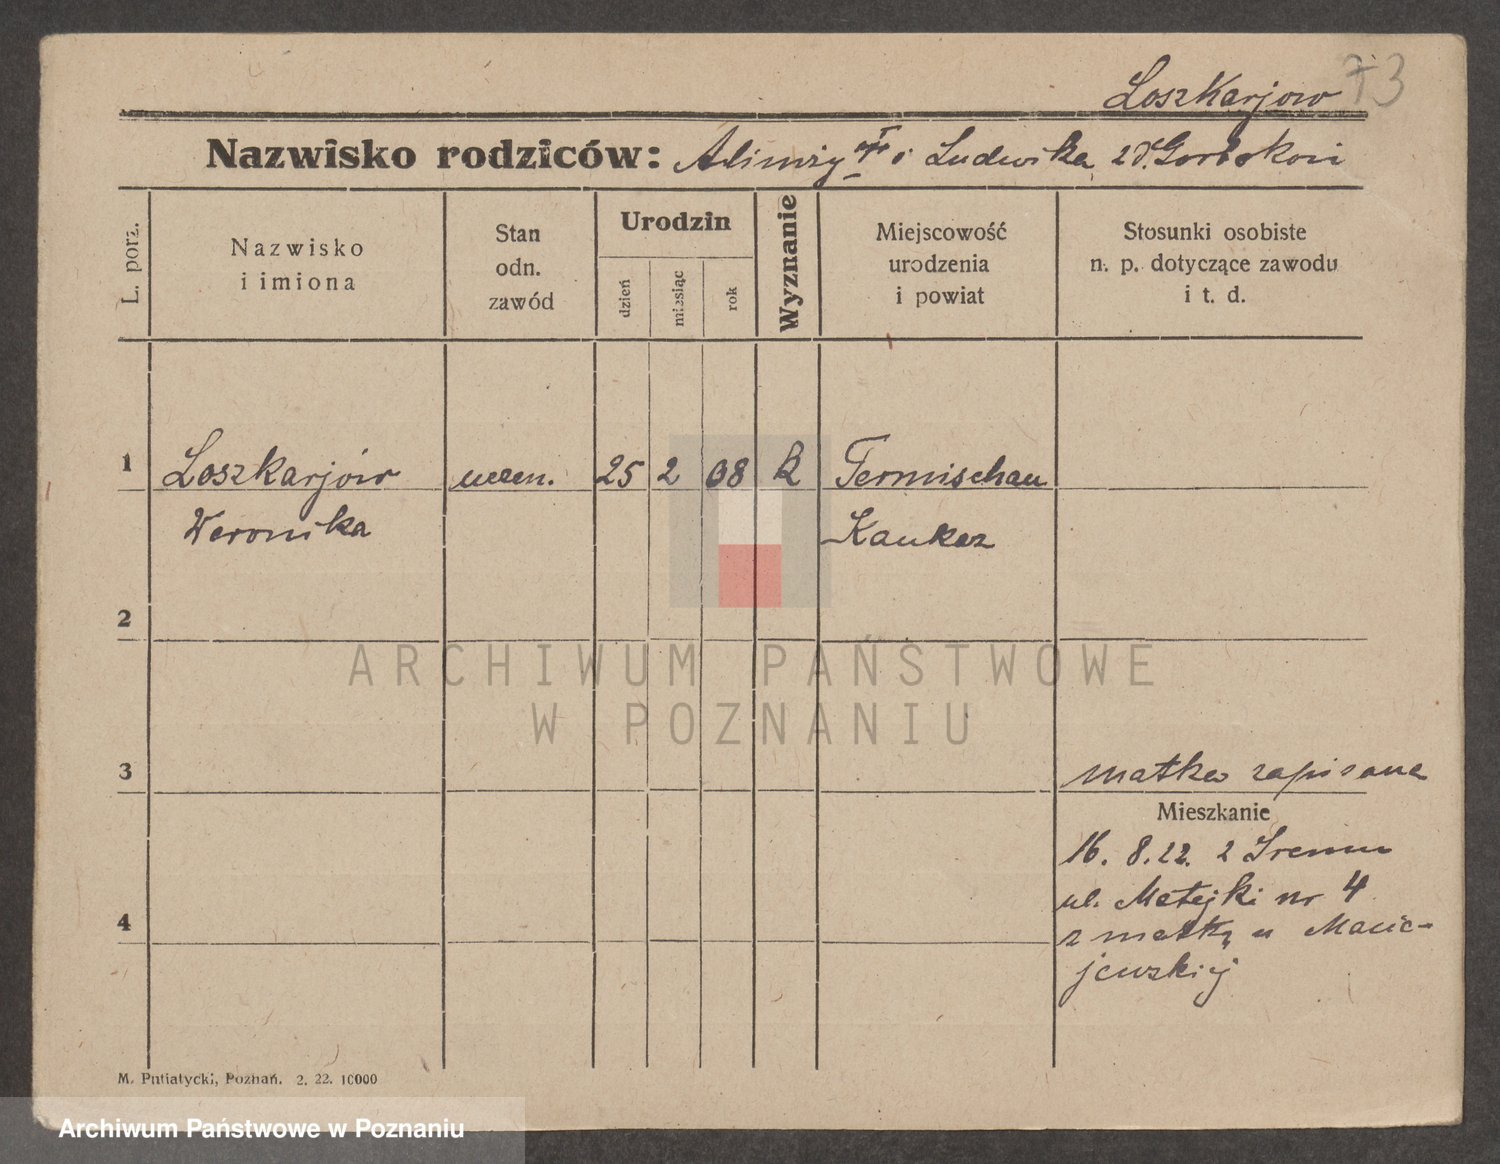 Loszkarjow 73
Nazwisko rodziców: i Ludwika
L. porz.
Nazwisko
i imiona
Stan
odn.
zawód
Urodzin
dzień
miesiąc
rok
Wyznanie
Miejscowość
urodzenia
i powiat
Stosunki osobiste
n. p. dotyczące zawodu
i t. d.
1 Loszkarjów uczen. 25 2 08 Termischan
Weronika Kaukaz
2
ARCHIWUM PAŃSTWOWE
W POZNANIU
3 matka zapisana
Mieszkanie
16. 8. 22. z Śremu
ul. Matejki nr 4
4 z matką u Macie-
jewskiej
M. Putiatycki, Poznań. 2. 22. 10000
Archiwum Państwowe w Poznaniu